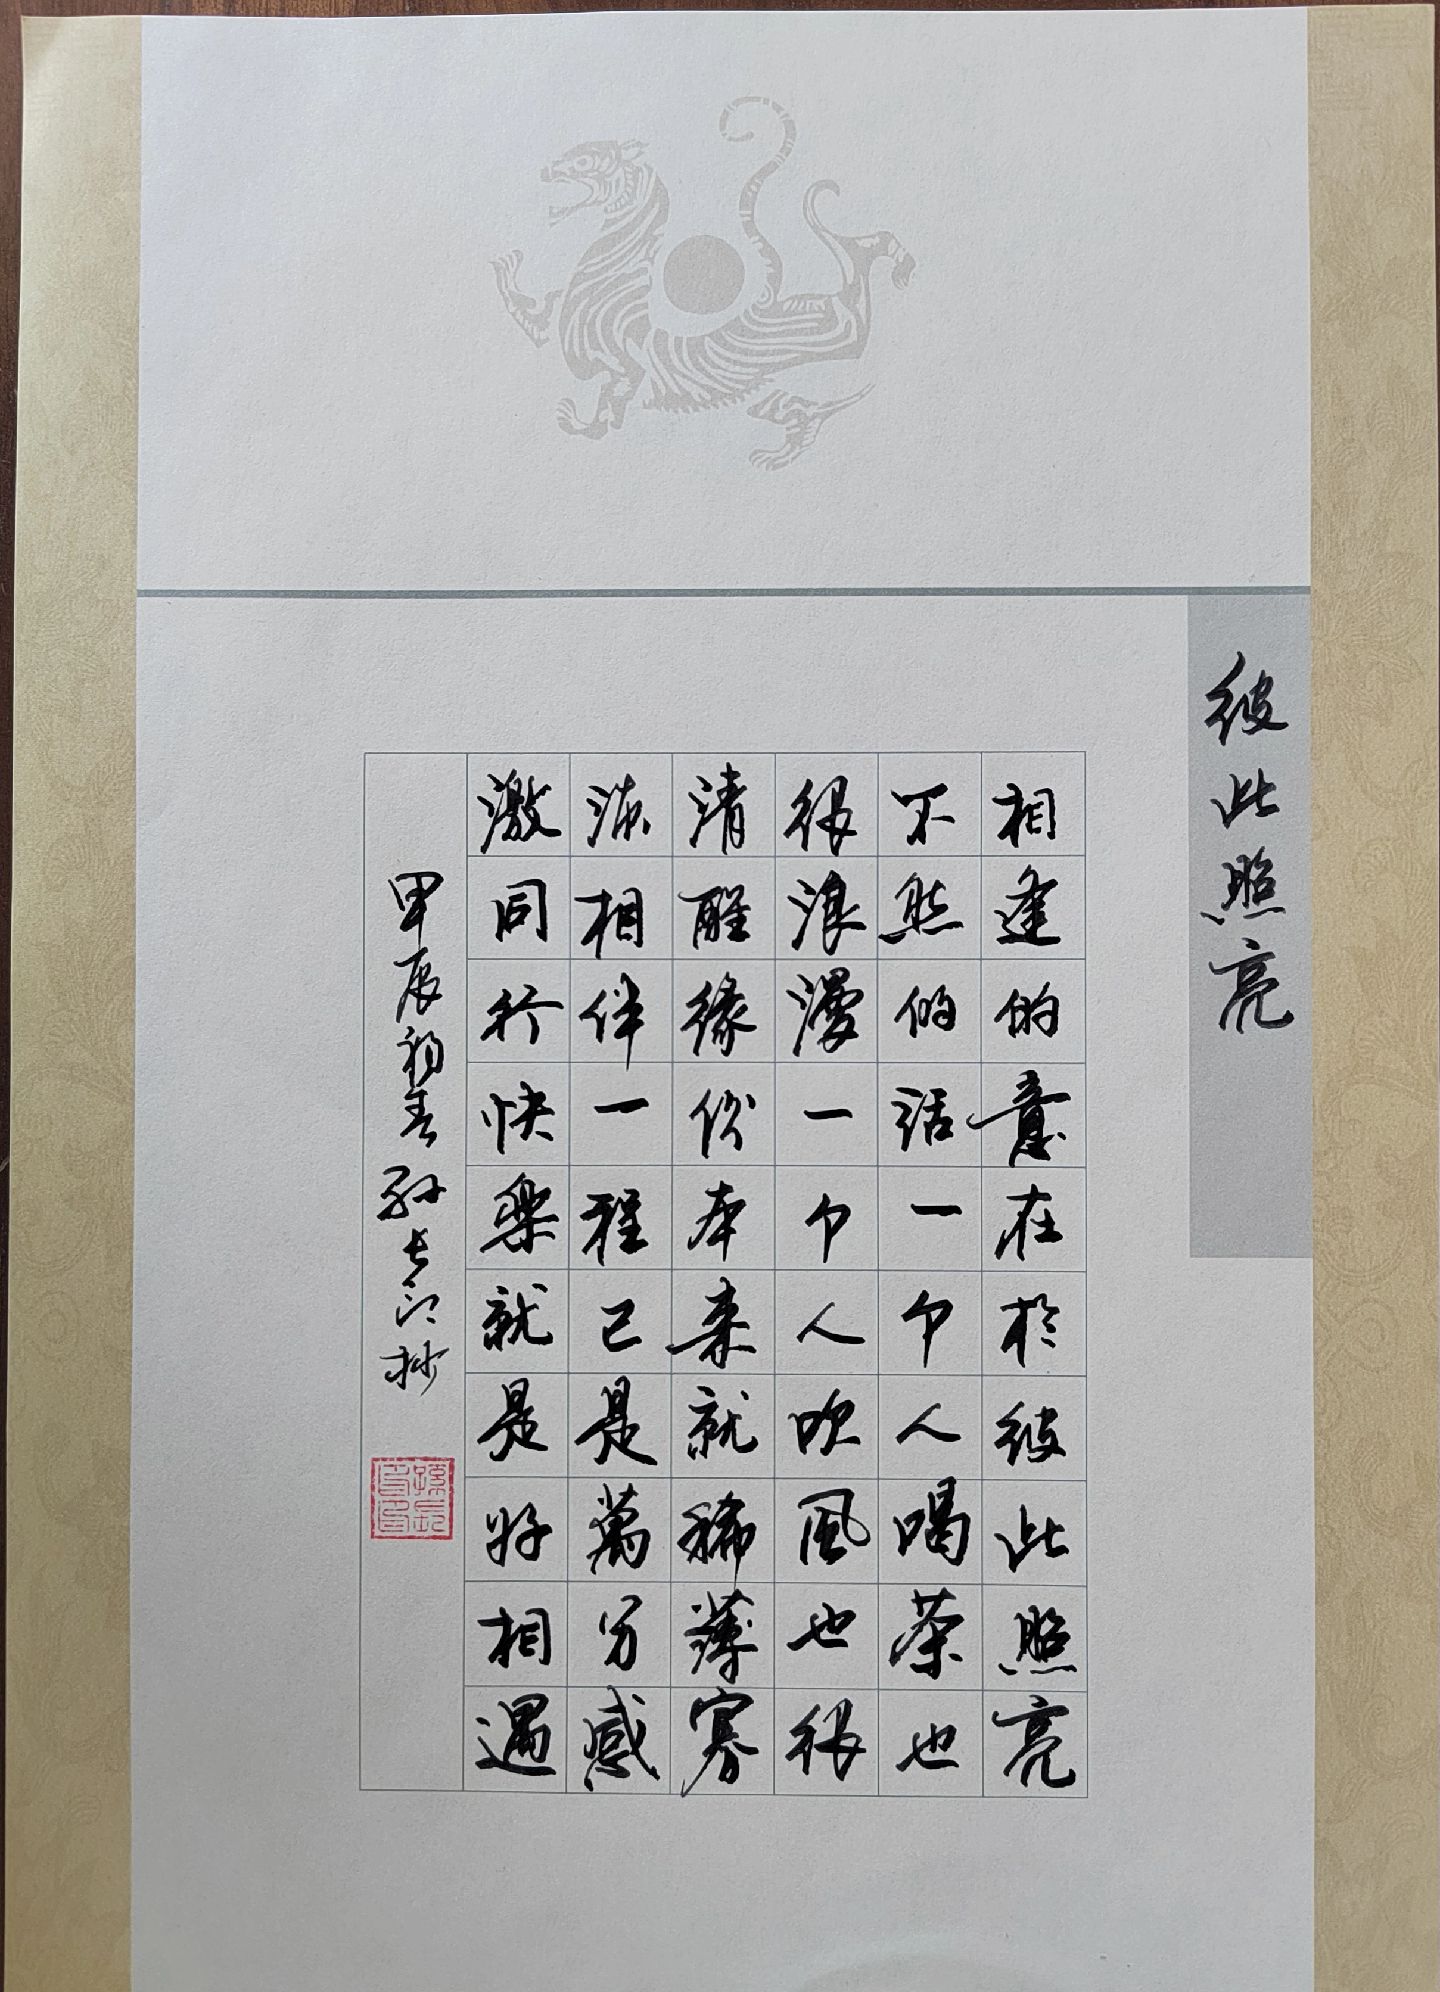 彼此照亮
相逢的意在於彼此照亮
不然的话一个人喝茶也
很浪漫一个人吹風也很
清醒缘份本来就稀薄寡
淡相伴一程已是萬分感
激同行快樂就是好相遇
甲辰初春孙长江抄